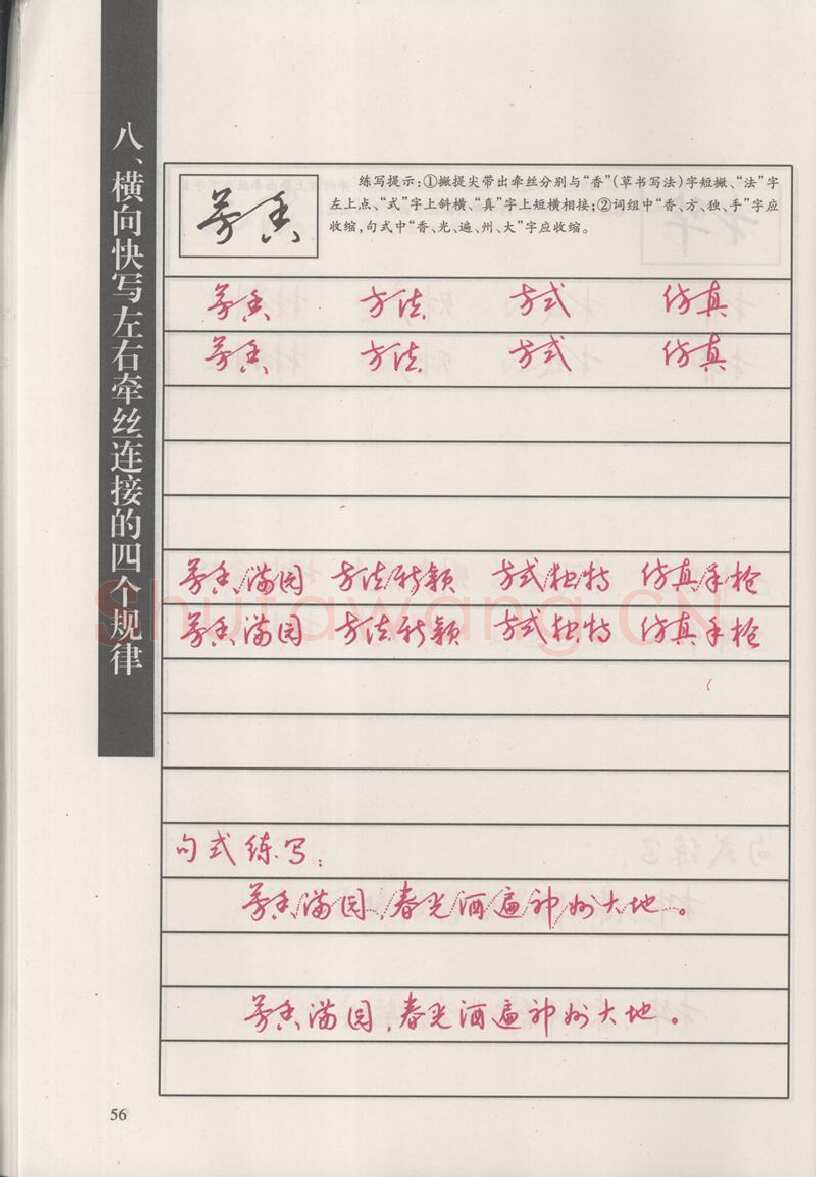 八、横向快写左右牵丝连接的四个规律
芳香
练写提示:①撇提尖带出牵丝分别与“香”(草书写法)字短撇、“法”字
左上点、“式”字上斜横、“真”字上短横相接;②词组中“香、方、独、手”字应
收缩,句式中“香、光、遍、州、大”字应收缩。
芳香 方法 方式 仿真
芳香 方法 方式 仿真
芳香满园 方法新颖 方式独特 仿真手枪
芳香满园 方法新颖 方式独特 仿真手枪
Shufawang.CN
句式练写:
芳香满园,春光洒遍神州大地。
芳香满园,春光洒遍神州大地。
56